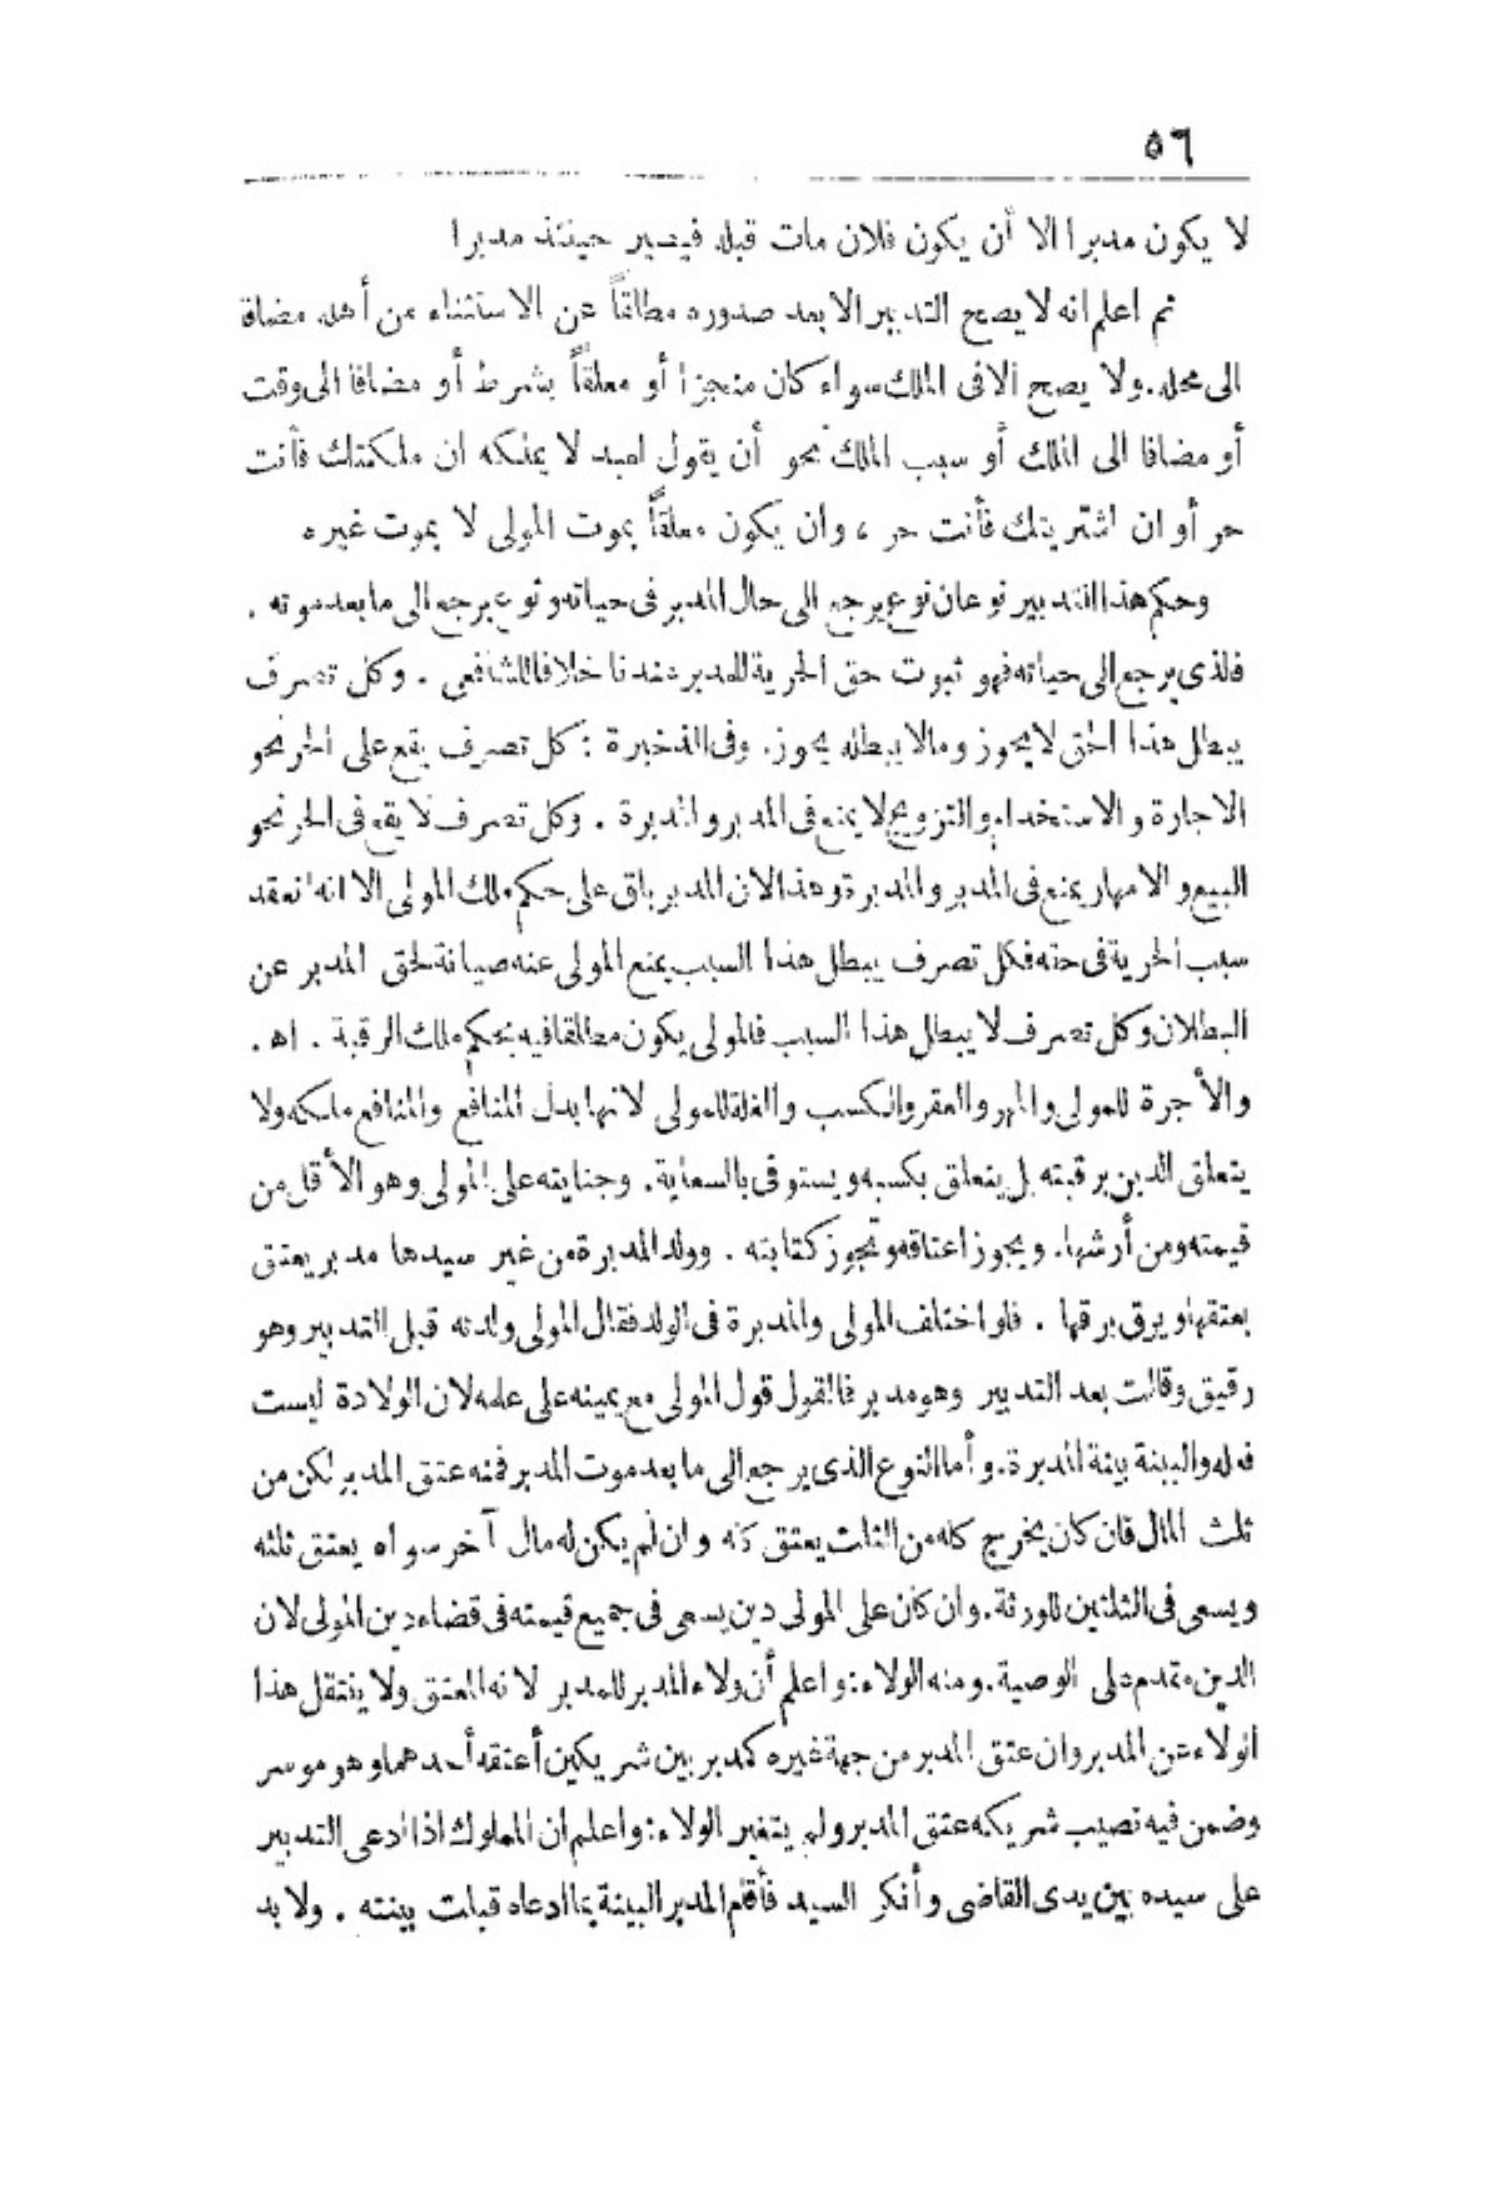 ٥٦
لا يكون مدبرا الا أن يكون فلان مات قبله فيصير حينئذ مدبرا
ثم اعلم انه لا يصح التدبير الا بعد صدوره مطلقاً عن الاستثناء من أهله مضافا
الى محله. ولا يصح الا فى الملك سواء كان منجزا أو معلقاً بشرط أو مضافا الى وقت
أو مضافا الى الملك أو سبب الملك نحو أن يقول لعبد لا يملكه ان ملكتك فأنت
حر أو ان اشتريتك فأنت حر ، وان يكون معلقاً بموت المولى لا بموت غيره
وحكم هذا التدبير نوعان نوع يرجع الى حال المدبر فى حياته ونوع يرجع الى ما بعد موته .
فلذى يرجع الى حياته فهو ثبوت حق الحرية للمدبر عندنا خلافا للشافعى . وكل تصرف
يبطل هذا الحق لا يجوز وما لا يبطله يجوز. وفى الذخيرة : كل تصرف يقع على الحر نحو
الاجارة والاستخدام والتزويج لا يمنع فى المدبر والمدبرة . وكل تصرف لا يقع فى الحر نحو
البيع والامهار يمنع فى المدبر والمدبرة وهذا لان المدبر باق على حكم ملك المولى الا انه انعقد
سبب الحرية فى حقه فكل تصرف يبطل هذا السبب يمنع المولى عنه صيانة لحق المدبر عن
البطلان وكل تصرف لا يبطل هذا السبب فالمولى يكون مطلقا فيه بحكم ملك الرقبة . اه .
والأجرة للمولى والمهر والعقر والكسب والغلة للمولى لانها بدل المنافع والمنافع ملكه ولا
يتعلق الدين برقبته بل يتعلق بكسبه ويستوفى بالسعاية. وجنايته على المولى وهو الأقل من
قيمته ومن أرشها. ويجوز اعتاقه وتجوز كتابته . وولد المدبرة من غير سيدها مدبر يعتق
بعتقها ويرق برقها . فلو اختلف المولى والمدبرة فى الولد فقال المولى ولدته قبل التدبير وهو
رقيق وقالت بعد التدبير وهو مدبر فالقول قول المولى مع يمينه على علمه لان الولادة ليست
فعله والبينة بينة المدبرة. وأما النوع الذى يرجع الى ما بعد موت المدبر فمنه عتق المدبر لكن من
ثلث المال فان كان يخرج كله من الثلث يعتق كله وان لم يكن له مال آخر سواه يعتق ثلثه
ويسعى فى الثلثين للورثة. وان كان على المولى دين يسعى فى جميع قيمته فى قضاء دين المولى لان
الدين مقدم على الوصية. ومنه الولاء: واعلم أن ولاء المدبر للمدبر لانه المعتق ولا ينتقل هذا
الولاء عن المدبر وان عتق المدبر من جهة غيره كمدبر بين شريكين أعتقه أحدهما وهو موسر
وضمن فيه نصيب شريكه عتق المدبر ولم يتغير الولاء: واعلم ان المملوك اذا ادعى التدبير
على سيده بين يدى القاضى وأنكر السيد فأقام المدبر البينة بما ادعاه قبلت بينته . ولا بد